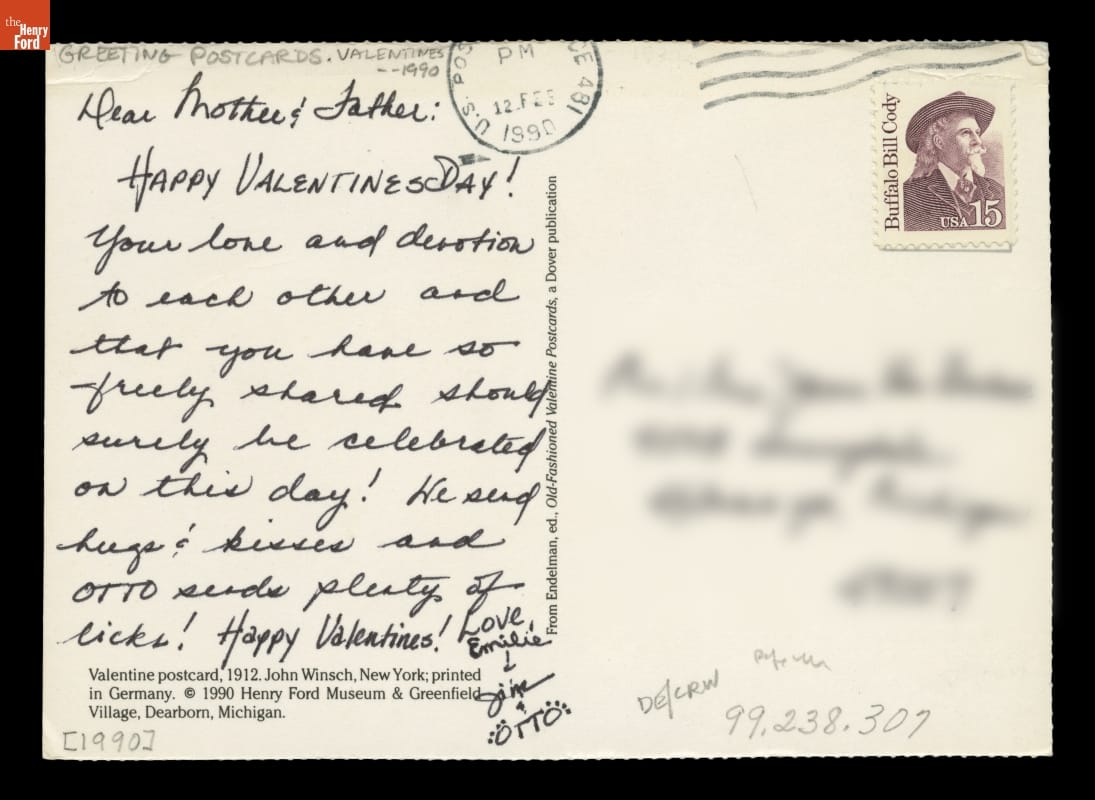 the
Henry
Ford
GREETING POSTCARDS. VALENTINES
--1990
U.S. POS
PM
12 FEB
1990
CE 481
Buffalo Bill Cody
USA 15
Dear Mother & Father:
HAPPY VALENTINES DAY!
Your love and devotion
to each other and
that you have so
freely shared should
surely be celebrated
on this day! We send
hugs & kisses and
OTTO sends plenty of
licks! Happy Valentines!
Love
Emilie
&
Jim
&
OTTO
From Endelman, ed., Old-Fashioned Valentine Postcards, a Dover publication
Valentine postcard, 1912. John Winsch, New York; printed
in Germany. © 1990 Henry Ford Museum & Greenfield
Village, Dearborn, Michigan.
[1990]
DE/CRW
99.238.307